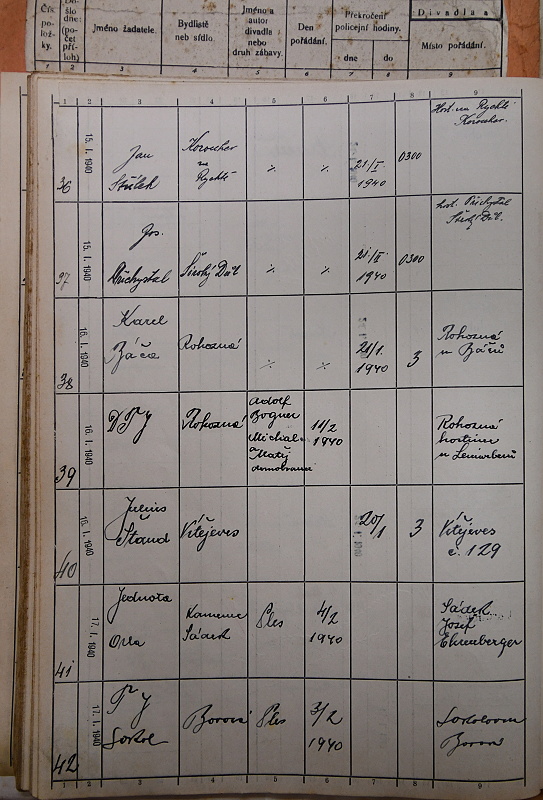 Čís.
polož-
ky.
Došlo
dne:
(po-
čet
pří-
loh)
Jméno žadatele.
Bydliště
neb sídlo.
Jméno a
autor
divadla
nebo
druh zábavy.
Den
pořádání.
Překročení
policejní hodiny.
dne
do
Divadla a
Místo pořádání.
1 2 3 4 5 6 7 8 9
36
15. I. 1940
Jan
Korouhev
na
Rychtě
⁒
⁒
21/I
1940
0300
Host. na Rychtě
Korouhev.
37
15. I. 1940
Jos.
Přichystal
Široký Důl
⁒
⁒
21/I
1940
0300
host. Přichystal
Široký Důl.
38
16. I. 1940
Karel
Báča
Rohozná
⁒
⁒
21/1.
1940
3
Rohozná
u Báčů
39
16. I. 1940
DTJ
Rohozná
Adolf
Bogner
Michal
Matěj
11/2
1940
Rohozná
hostinec
u
40
16. I. 1940
Julius
Štand
Vítějeves
20/1
3
Vítějeves
č. 129
41
17. I. 1940
Jednota
Orla
Kamenec
Sádek
Ples
4/2
1940
Sádek
Josef
Ehrenberger
42
17. I. 1940
TJ
Sokol
Borová
Ples
3/2
1940
Sokolovna
Borová
1 2 3 4 5 6 7 8 9